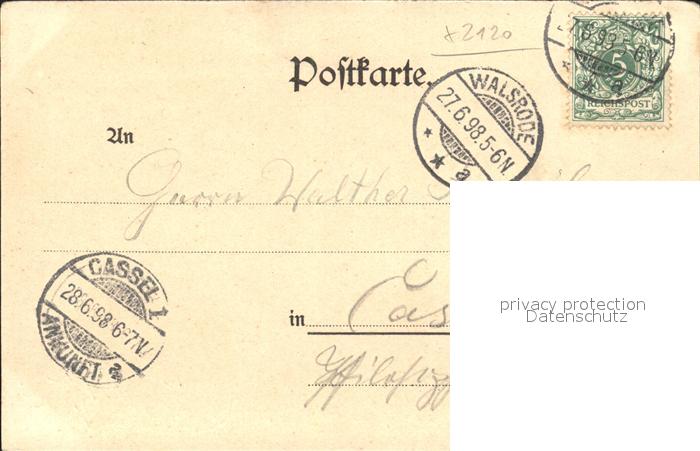 x2120
Postkarte.
WALSRODE
27.6.98.5-6N.
a
5
REICHSPOST
An
Herrn Walther
CASSEL 1
28.6.98.6-7.N.
ANKUNFT a
in Cas
privacy protection
Datenschutz